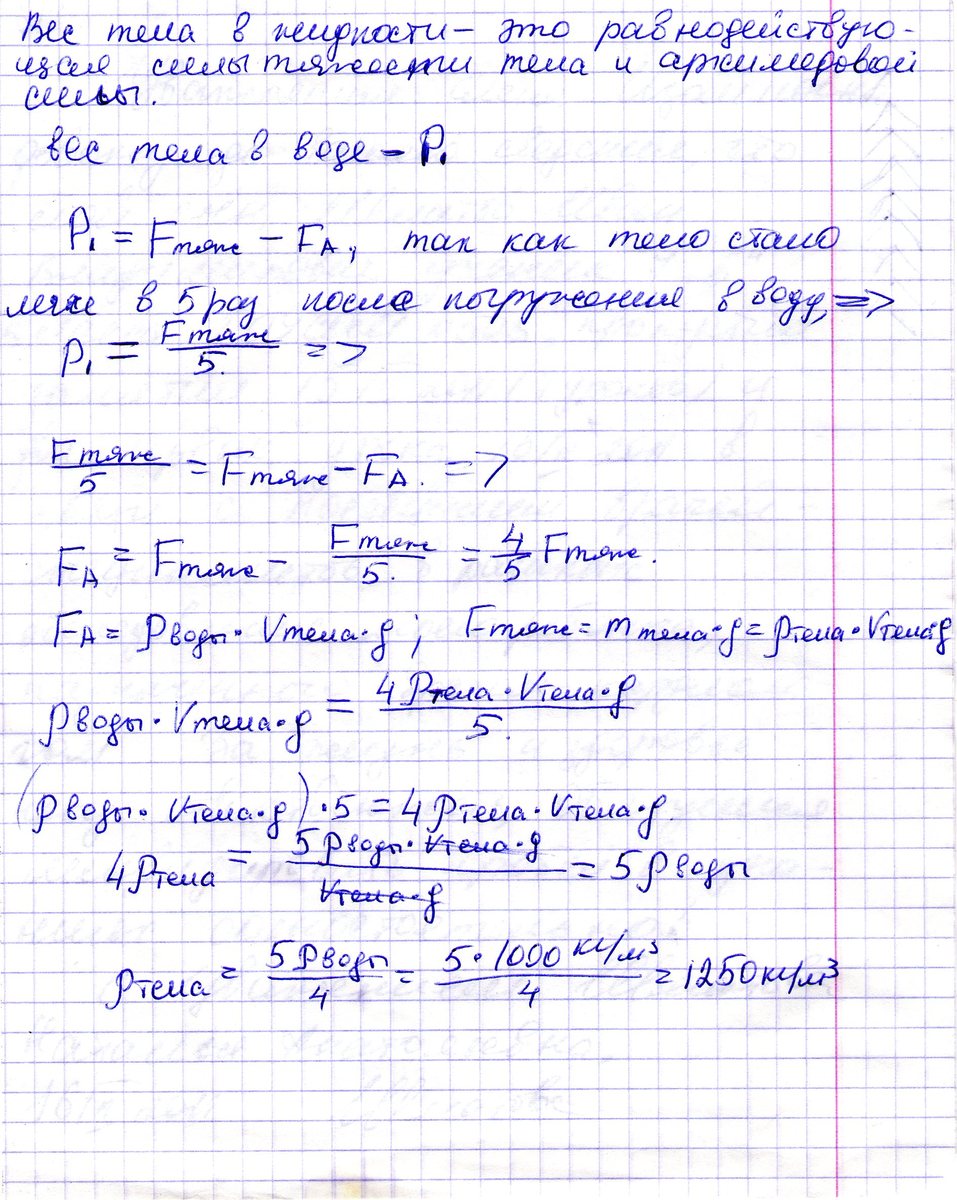 Вес тела в жидкости – это равнодействую-
щая силы тяжести тела и архимедовой
силы.
вес тела в воде – P₁
P₁ = Fтяж – FА, так как тело стало
легче в 5 раз после погружения в воду, =>
P₁ = Fтяж/5. =>
Fтяж/5 = Fтяж – FА. =>
FА = Fтяж – Fтяж/5. = 4/5 Fтяж.
FА = ρводы · Vтела · g ; Fтяж = mтела · g = ρтела · Vтела · g
ρводы · Vтела · g = 4ρтела · Vтела · g/5.
(ρводы · Vтела · g) · 5 = 4ρтела · Vтела · g.
4ρтела = 5ρводы · Vтела · g/Vтела · g = 5ρводы
ρтела = 5ρводы/4 = 5 · 1000 кг/м³/4 = 1250 кг/м³